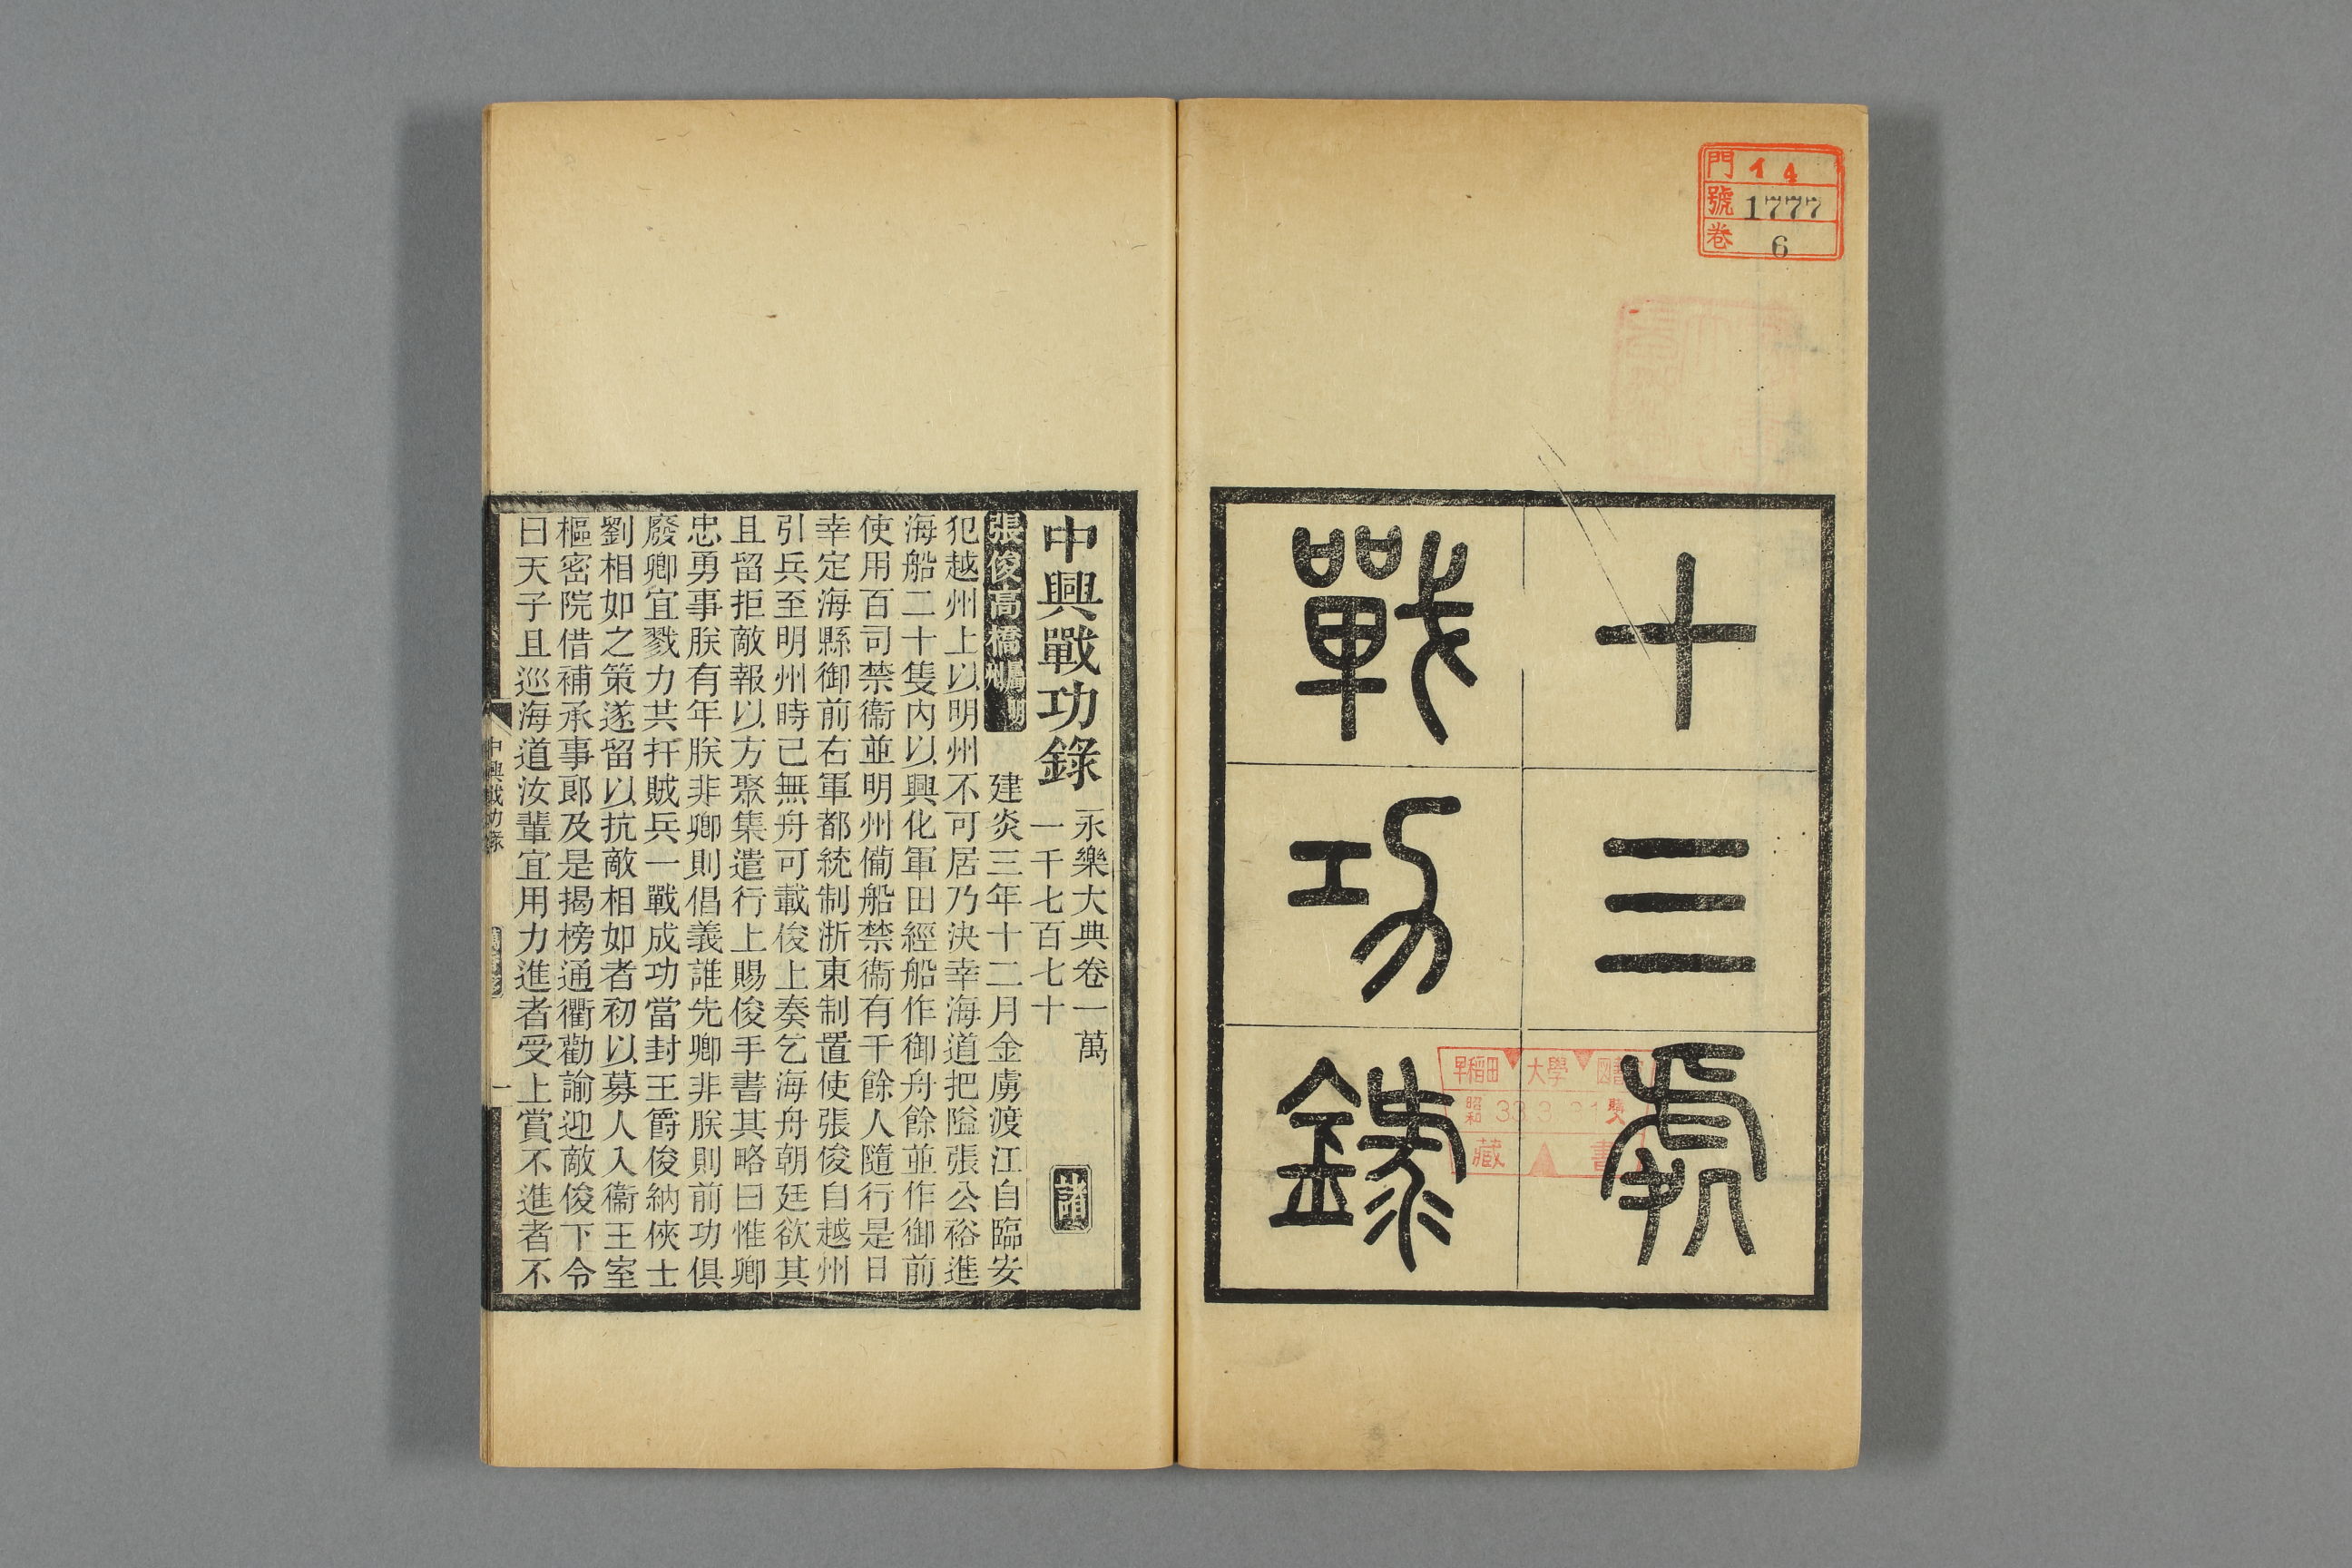 門 14
號 1777
卷 6
十三處
戰功錄
早稻田大學圖書
昭和 33.3.
藏書
中興戰功錄
永樂大典卷一萬
一千七百七十
張俊高橋
建炎三年十二月金虜渡江自臨安
犯越州上以明州不可居乃決幸海道把隘張公裕進
海船二十隻內以興化軍田經船作御舟餘並作御前
使用百司禁衞並明州僃船禁衞有干餘人隨行是日
幸定海縣御前右軍都統制浙東制置使張俊自越州
引兵至明州時已無舟可載俊上奏乞海舟朝廷欲其
且留拒敵報以方聚集遣行上賜俊手書其略曰惟卿
忠勇事朕有年朕非卿則倡義誰先卿非朕則前功俱
廢卿宜戮力共扞賊兵一戰成功當封王爵俊納俠士
劉相如之策遂留以抗敵相如者初以募人入衞王室
樞密院借補承事郎及是揭榜通衢勸諭迎敵俊下令
曰天子且巡海道汝輩宜用力進者受上賞不進者不
中興戰功錄
一